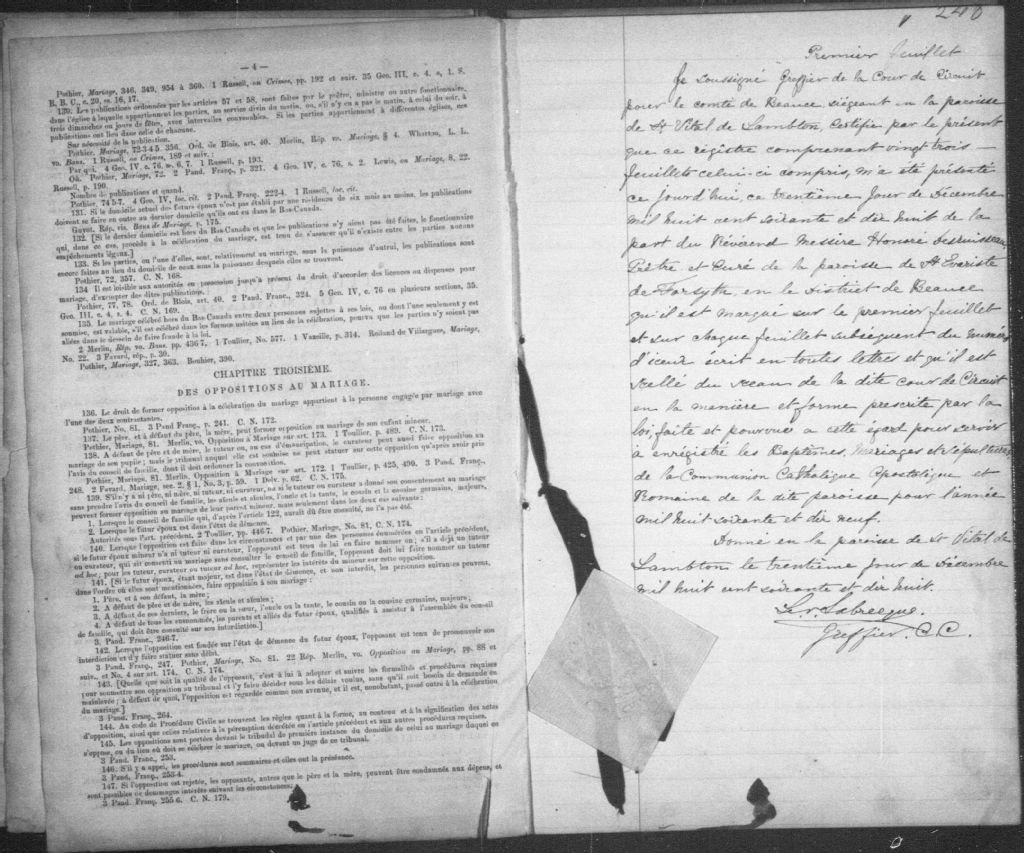 — 4 —
Pothier, Mariage, 346, 349, 954 à 360. 1 Russell, on Crimes, pp. 192 et suiv. 35 Geo. III, c. 4. s, 1. S.
R. B. C., c. 20, ss. 16, 17.
130. Les publications ordonnées par les articles 57 et 58, sont faites par le prêtre, ministre ou autre fonctionnaire,
dans l'église à laquelle appartiennent les parties, au service divin du matin, ou, s'il n'y en a pas le matin, à celui du soir, à
trois dimanches ou jours de fêtes, avec intervalles convenables. Si les parties appartiennent à différentes églises, ces
publications ont lieu dans celle de chacune.
Sur nécessité de la publication.
Pothier, Mariage, 72-3-4-5. 356. Ord. de Blois, art. 40. Merlin, Rép. vo. Mariage, § 4. Wharton, L. L.
vo. Bans. 1 Russell, on Crimes, 189 et suiv.
Par qui. 4 Geo. IV. c. 76, ss. 6, 7. 1 Russell, p. 193.
Où. Pothier, Mariage, 72. 2 Pand. Franç., p. 321. 4 Geo. IV, c. 76, s. 2. Lewis, on Mariage, 8, 22.
Russell, p. 190.
Nombre de publications et quand.
Pothier, 74 5-7. 4 Geo. IV, loc. cit. 2 Pand. Franç. 222-4. 1 Russell, loc. cit.
131. Si le domicile actuel des futurs époux n'est pas établi par une résidence de six mois au moins, les publications
doivent se faire en outre au dernier domicile qu'ils ont eu dans le Bas-Canada.
Guyot, Rép. vis. Bans de Mariage, p. 175.
132. [Si le dernier domicile est hors du Bas-Canada et que les publications n'y aient pas été faites, le fonctionnaire
qui, dans ce cas, procède à la célébration du mariage, est tenu de s'assurer qu'il n'existe entre les parties aucuns
empêchements légaux.]
133. Si les parties, ou l'une d'elles, sont, relativement au mariage, sous la puissance d'autrui, les publications sont
encore faites au lieu du domicile de ceux sous la puissance desquels elles se trouvent.
Pothier, 72, 357. C. N. 168.
134 Il est loisible aux autorités en possession jusqu'à présent du droit d'accorder des licences ou dispenses pour
mariage, d'exempter des dites publications.
Pothier, 77, 78. Ord. de Blois, art. 40. 2 Pand. Franç., 324. 5 Geo. IV, c. 76 en plusieurs sections, 35.
Geo. III, c. 4, s. 4. C. N. 169.
135. Le mariage célébré hors du Bas-Canada entre deux personnes sujettes à ses lois, ou dont l'une seulement y est
soumise, est valable, s'il est célébré dans les formes usitées au lieu de la célébration, pourvu que les parties n'y soient pas
allées dans le dessein de faire fraude à la loi.
2 Merlin, Rép. vo. Bans. pp. 436-7. 1 Toullier, No. 577. 1 Vazeille, p. 314. Rolland de Villargues, Mariage,
No. 22. 3 Favard, rép., p. 30.
Pothier, Mariage, 327, 363. Bouhier, 390.
CHAPITRE TROISIÈME.
DES OPPOSITIONS AU MARIAGE.
136. Le droit de former opposition à la célébration du mariage appartient à la personne engagée par mariage avec
l'une des deux contractantes.
Pothier, No. 81. 3 Pand Franç., p. 241. C. N. 172.
137. Le père, et à défaut du père, la mère, peut former opposition au mariage de son enfant mineur.
Pothier, Mariage, 81. Merlin, vo. Opposition à Mariage sur art. 173. 1 Toullier, p. 489. C. N. 173.
138. A défaut de père et de mère, le tuteur ou, en cas d'émancipation, le curateur peut aussi faire opposition au
mariage de son pupille; mais le tribunal auquel elle est soumise ne peut statuer sur cette opposition qu'après avoir pris
l'avis du conseil de famille, dont il doit ordonner la convocation.
Pothier, Mariage, 81. Merlin, Opposition à Mariage sur art. 172. 1 Toullier, p. 425, 490. 3 Pand. Franç.,
248. 2 Favard, Mariage, sec. 2, § 1, No. 3, p. 59. 1 Delv. p. 62. C. N. 175.
139. S'il n'y a ni père, ni mère, ni tuteur, ni curateur, ou si le tuteur ou curateur a donné son consentement au mariage
sans prendre l'avis du conseil de famille, les aïeuls et aïeules, l'oncle et la tante, le cousin et le cousine germains, majeurs,
peuvent former opposition au mariage de leur parent mineur, mais seulement dans les deux cas suivants:
1. Lorsque le conseil de famille qui, d'après l'article 122, aurait dû être consulté, ne l'a pas été.
2. Lorsque le futur époux est dans l'état de démence.
Autorités sous l'art. précédent. 2 Toullier, pp. 446-7. Pothier, Mariage, No. 81, C. N. 174.
140. Lorsque l'opposition est faite dans les circonstances et par une des personnes énumérées en l'article précédent,
si le futur époux mineur n'a ni tuteur ni curateur, l'opposant est tenu de lui en faire nommer un; s'il a déjà un tuteur
ou curateur, qui ait consenti au mariage sans consulter le conseil de famille, l'opposant doit lui faire nommer un tuteur
ad hoc; pour les tuteur, curateur ou tuteur ad hoc, représenter les intérêts du mineur sur cette opposition.
141. [Si le futur époux, étant majeur, est dans l'état de démence, et non interdit, les personnes suivantes peuvent,
dans l'ordre où elles sont mentionnées, faire opposition à son mariage:
1. Père, et à son défaut, la mère;
2. A défaut de père et de mère, les aïeuls et aïeules;
3. A défaut de ces derniers, le frère ou la sœur, l'oncle ou la tante, le cousin ou la cousine germains, majeurs;
4. A défaut de tous les susnommés, les parents et alliés du futur époux, qualifiés à assister à l'assemblée du conseil
de famille, qui doit être consulté sur son interdiction.]
3. Pand. Franç., 246-7.
142. Lorsque l'opposition est fondée sur l'état de démence du futur époux, l'opposant est tenu de promouvoir son
interdiction et d'y faire statuer sans délai.
3 Pand. Franç., 247. Pothier, Mariage, No. 81. 22 Rép. Merlin, vo. Opposition au Mariage, pp. 88 et
suiv., et No. 4 sur art. 174. C. N. 174.
143. [Quelle que soit la qualité de l'opposant, c'est à lui à adopter et suivre les formalités et procédures requises
pour soumettre son opposition au tribunal et l'y faire décider sous les délais voulus, sans qu'il soit besoin de demande en
mainlevée; à défaut de quoi, l'opposition est regardée comme non avenue, et il est, nonobstant, passé outre à la célébration
du mariage.]
3 Pand. Franç., 264.
144. Au code de Procédure Civile se trouvent les règles quant à la forme, au contenu et à la signification des actes
d'opposition, ainsi que celles relatives à la péremption décrétée en l'article précédent et aux autres procédures requises.
145. Les oppositions sont portées devant le tribunal de première instance du domicile de celui au mariage duquel on
s'oppose, ou du lieu où doit se célébrer le mariage, ou devant un juge de ce tribunal.
3 Pand. Franç., 253.
146. S'il y a appel, les procédures sont sommaires et elles ont la préséance.
3 Pand. Franç., 253-4.
147. Si l'opposition est rejetée, les opposants, autres que le père et la mère, peuvent être condamnés aux dépens, et
sont passibles de dommages intérêts suivant les circonstances.
3 Pand. Franç. 255-6. C. N. 179.
240
Premier feuillet
Je soussigné Greffier de la Cour de Circuit
pour le comté de Beauce siégeant en la paroisse
de St Vital de Lambton, Certifie par le présent
que ce régistre comprenant vingt trois —
feuillets celui-ci compris, m'a été présenté
ce jourd'hui, ce trentième jour de Décembre
mil huit cent soixante et dix huit de la
part du Révérend Messire Honoré Desruisseaux
Prêtre et Curé de la paroisse de St Evariste
de Forsyth, en le District de Beauce
qu'il est marqué sur le premier feuillet
et sur chaque feuillet subséquent du numéro
d'iceux écrit en toutes lettres et qu'il est
scellé du sceau de la dite cour de Circuit
en la manière et forme prescrite par la
loi, faite et pourvue à cette égard pour servir
à enregistré les Baptêmes, Mariages et Sépultures
de la Communion Catholique Apostolique et
Romaine de la dite paroisse pour l'année
mil huit soixante et dix neuf.
Donné en la paroisse de St Vital de
Lambton le trentième jour de Décembre
mil huit cent soixante et dix huit.
Labrecque.
Greffier. C C.